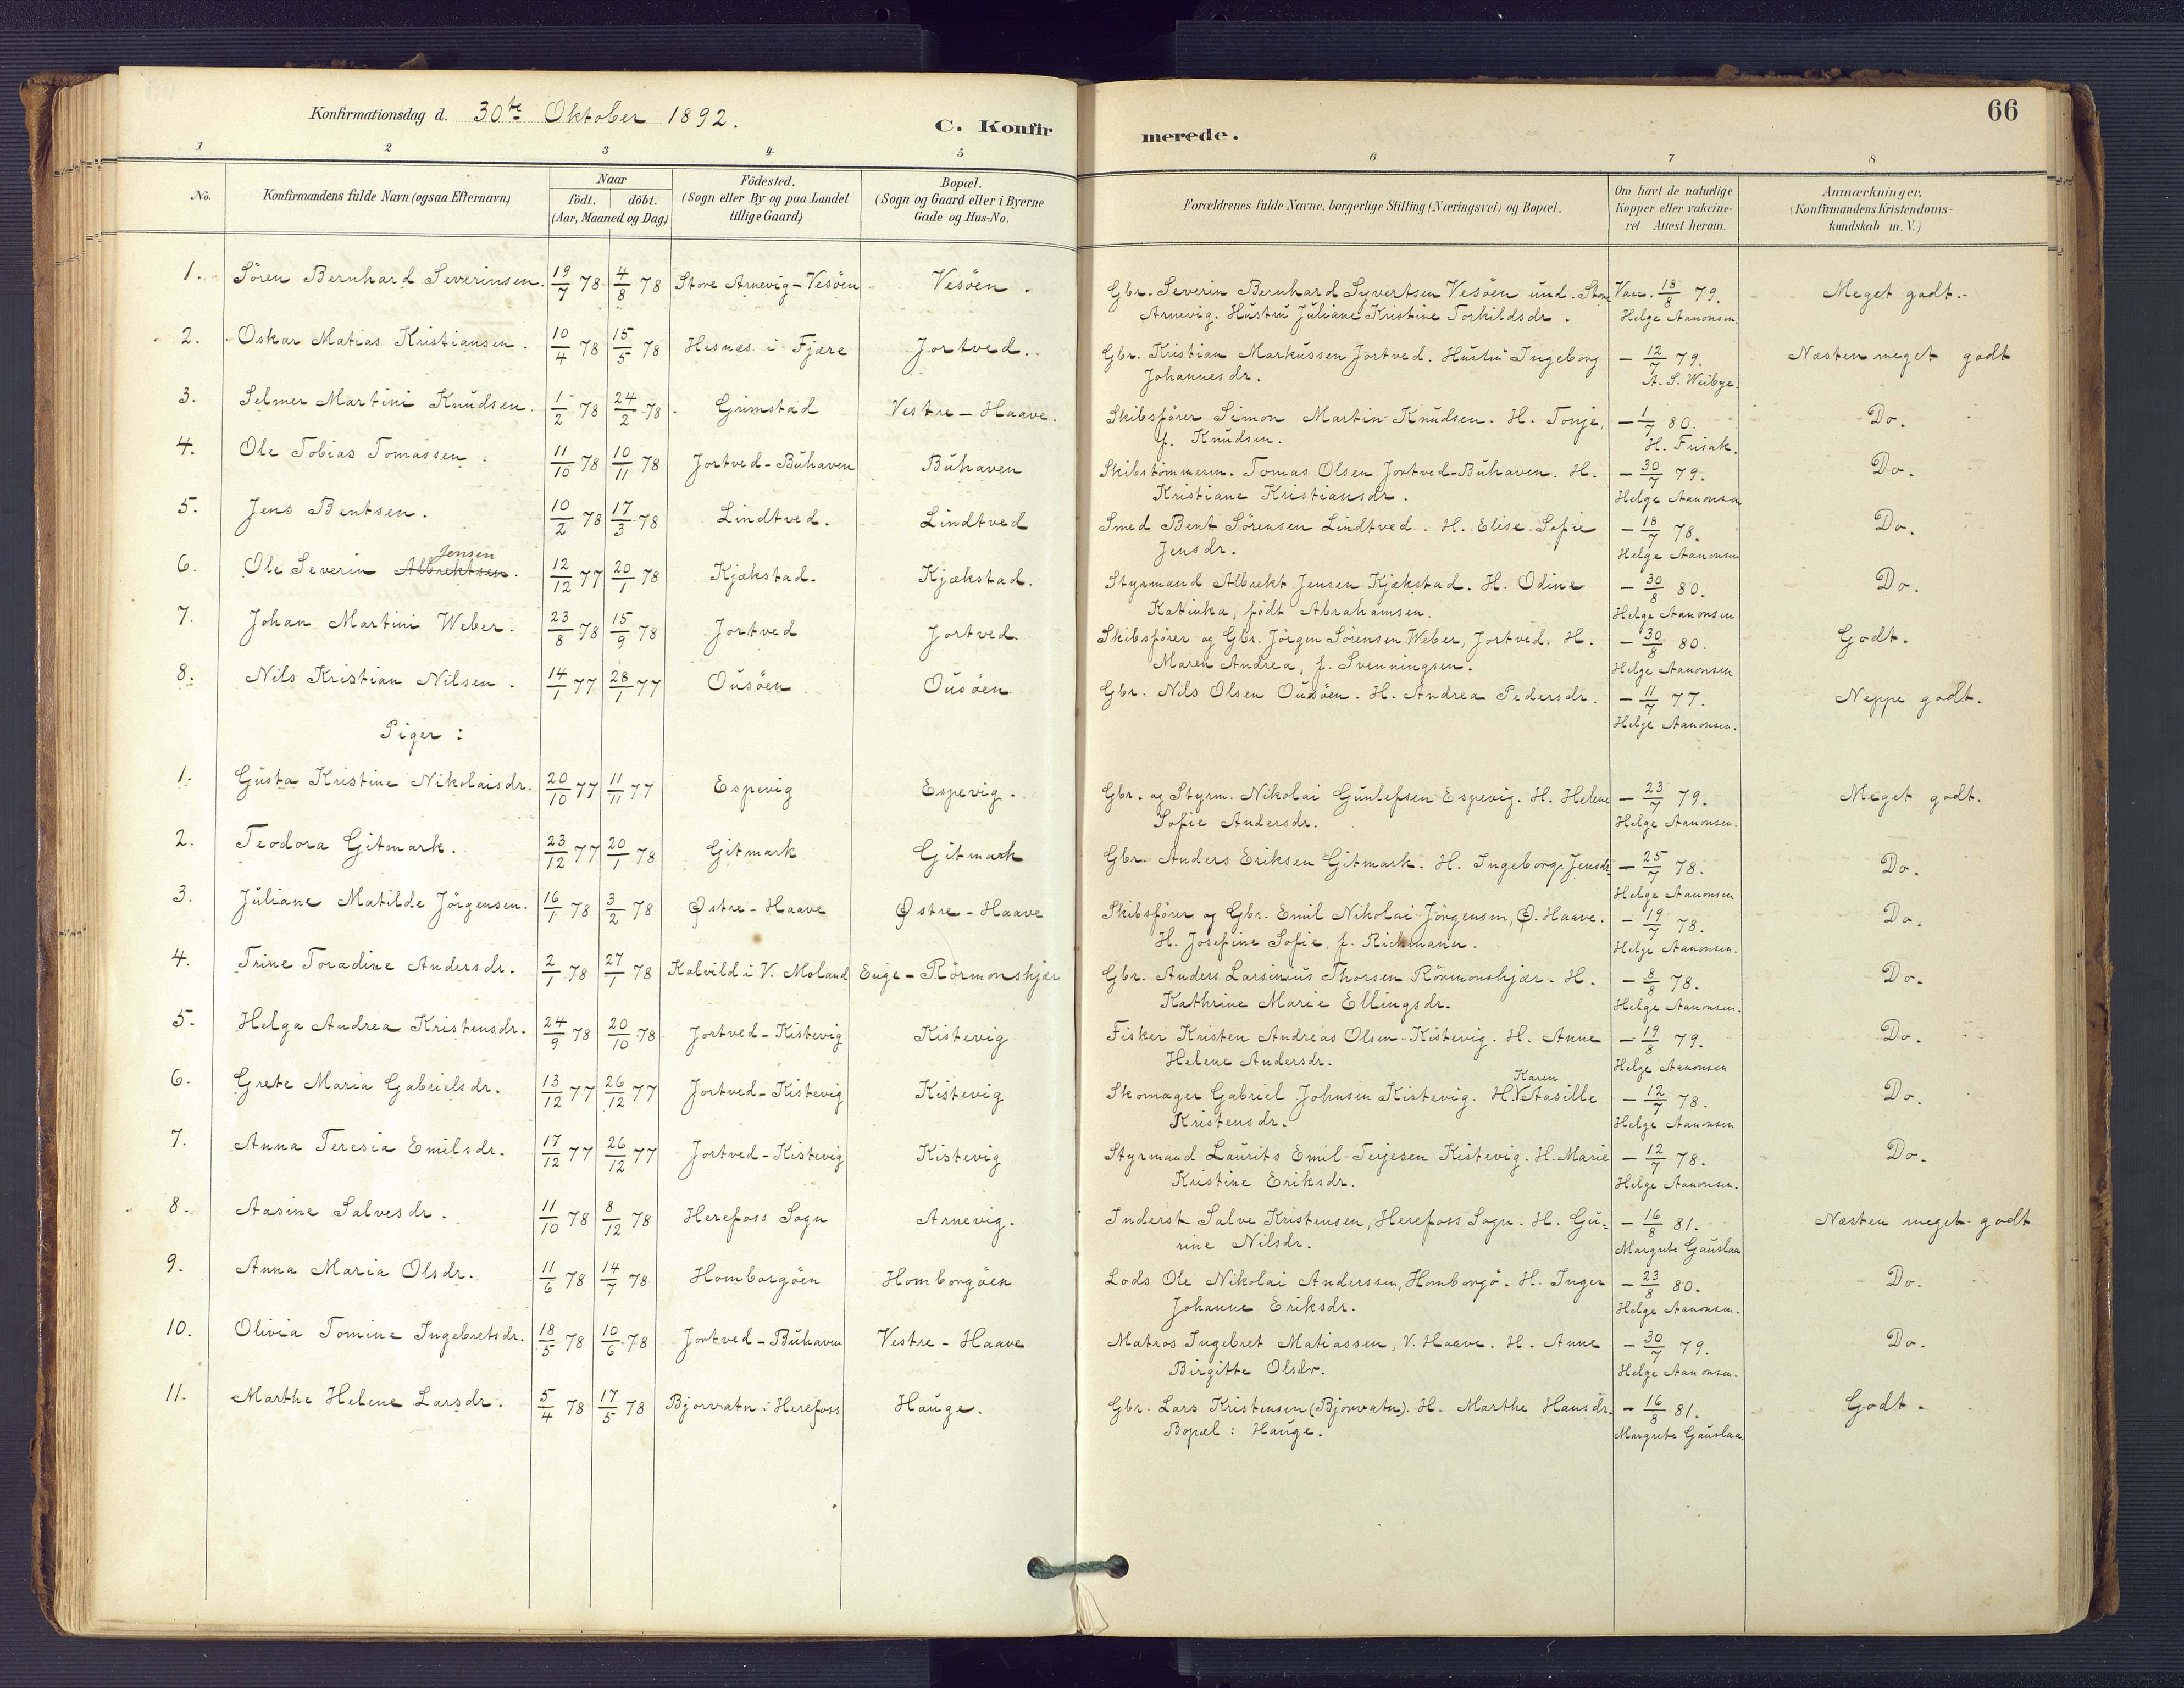 Konfirmationsdag d. 30te Oktober 1892.
C. Konfirmerede.
66
1 2 3 4 5 6 7 8
No. Konfirmandens fulde Navn (ogsaa Efternavn) Naar födt. döbt. (Aar, Maaned og Dag) Födested. (Sogn eller By og paa Landet tillige Gaard) Bopæl. (Sogn og Gaard eller i Byerne Gade og Hus-No. Forældrenes fulde Navne, borgerlige Stilling (Næringsvei) og Bopæl. Om havt de naturlige Kopper eller vakcineret Attest herom. Anmærkninger. (Konfirmandens Kristendomskundskab m. V.)
1. Sören Bernhard Severinsen. 19/7 78 4/8 78 Store Arnevig-Vesöen Vesöen. Gbr. Severin Bernhard Syvertsen Vesöen und. Store Vac. 18/8 79. Meget godt.
Arnevig. Hustru Juliane Kristine Torkildsdr. Helge Aanonsen.
2. Oskar Matias Kristiansen. 10/4 78 15/5 78 Hesnæs i Fjære Jortved. Gbr. Kristian Markussen Jortved. Hustru Ingeborg – 12/7 79. Næsten meget godt
Johannesdr. A. S. Weibye.
3. Selmer Martini Knudsen. 1/2 78 24/2 78. Grimstad Vestre-Haave. Skibsfører Simon Martin Knudsen. H. Tonje, – 1/7 80. Do.
f. Knudsen. H. Frisak.
4. Ole Tobias Tomassen. 11/10 78 10/11 78 Jortved-Buhaven Buhaven Skibstömmerm. Tomas Olsen Jortved-Buhaven. H. – 30/7 79. Do.
Kristiane Kristiansdr. Helge Aanonsen
5. Jens Bentsen. 10/2 78 17/3 78 Lindtved. Lindtved Smed Bent Sörensen Lindtved. H. Elise Sofie – 18/7 78. Do.
Jensdr. Helge Aanonsen
Jensen
6. Ole Severin Albrektsen. 12/12 77 20/1 78 Kjækstad. Kjækstad. Styrmand Albrekt Jensen Kjækstad. H. Odine – 30/8 80. Do.
Katinka, födt Abrahamsen. Helge Aanonsen
7. Johan Martini Weber. 23/8 78 15/9 78 Jortved Jortved Skibsfører og Gbr. Jörgen Sörensen Weber, Jortved. H. – 30/8 80. Godt.
Maren Andrea, f. Svenningsen. Helge Aanonsen
8. Nils Kristian Nilsen. 14/1 77 28/1 77 Ousöen Ousöen Gbr. Nils Olsen Ousöen. H. Andrea Pedersdr. – 11/7 77. Neppe godt.
Helge Aanonsen.
Piger:
1. Gusta Kristine Nikolaisdr. 20/10 77 11/11 77 Espevig Espevig. Gbr. og Styrm. Nikolai Gunlefsen Espevig. H. Helene – 23/7 79. Meget godt.
Sofie Andersdr. Helge Aanonsen.
2. Teodora Gitmark. 23/12 77 20/1 78 Gitmark Gitmark Gbr. Anders Eriksen Gitmark. H. Ingeborg Jensdr. – 25/7 78. Do.
Helge Aanonsen
3. Juliane Matilde Jörgensen. 16/1 78 3/2 78 Østre-Haave Østre-Haave Skibsfører og Gbr. Emil Nikolai Jörgensen, Ø. Haave. – 19/7 78. Do.
H. Josefine Sofie, f. Richmann. Helge Aanonsen.
4. Trine Toradine Andersdr. 2/1 78 27/1 78 Kalvild i V. Moland Enge-Römonskjær Gbr. Anders Larsinius Thorsen Römonskjær. H. – 8/8 78. Do.
Kathrine Marie Ellingsdr. Helge Aanonsen.
5. Helga Andrea Kristensdr. 24/9 78 20/10 78 Jortved-Kistevig Kistevig Fisker Kristen Andreas Olsen Kistevig. H. Anne – 19/8 79. Do.
Helene Andersdr. Helge Aanonsen
Karen
6. Grete Maria Gabrielsdr. 13/12 77 26/12 77 Jortved-Kistevig Kistevig Skomager Gabriel Johnsen Kistevig. H. Aasille – 12/7 78. Do.
Kristensdr. Helge Aanonsen
7. Anna Teresia Emilsdr. 17/12 77 26/12 77 Jortved-Kistevig Kistevig Styrmand Laurits Emil Terjesen Kistevig. H. Marie – 12/7 78. Do.
Kristine Eriksdr. Helge Aanonsen.
8. Aasine Salvesdr. 11/10 78 8/12 78 Herefoss Sogn Arnevig. Inderst Salve Kristensen, Herefoss Sogn. H. Gu- – 16/8 81. Næsten meget godt
rine Nilsdr. Margrete Gauslaa
9. Anna Maria Olsdr. 11/6 78 14/7 78 Homborgöen Homborgöen Lods Ole Nikolai Anderssen, Homborgö. H. Inger – 23/8 80. Do.
Johanne Eriksdr. Helge Aanonsen.
10. Olivia Tomine Ingebretsdr. 18/5 78 10/6 78 Jortved-Buhaven Vestre-Haave Matros Ingebret Matiassen, V. Haave. H. Anne – 30/7 79. Do.
Birgitte Olsdr. Helge Aanonsen.
11. Marthe Helene Larsdr. 5/4 78 17/5 78 Bjorvatn i Herefoss Hauge. Gbr. Lars Kristensen (Bjorvatn). H. Marthe Hansdr. – 16/8 81. Godt.
Bopæl: Hauge. Margrete Gauslaa.